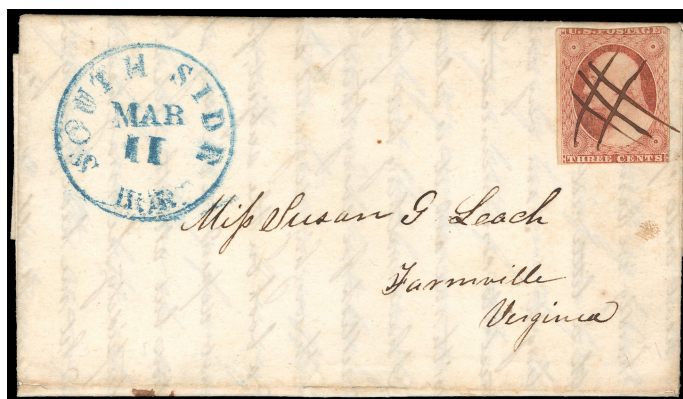 SOUTH SIDE
MAR
11
U.S. POSTAGE
THREE CENTS
Miss Susan G Leach
Farmville
Virginia